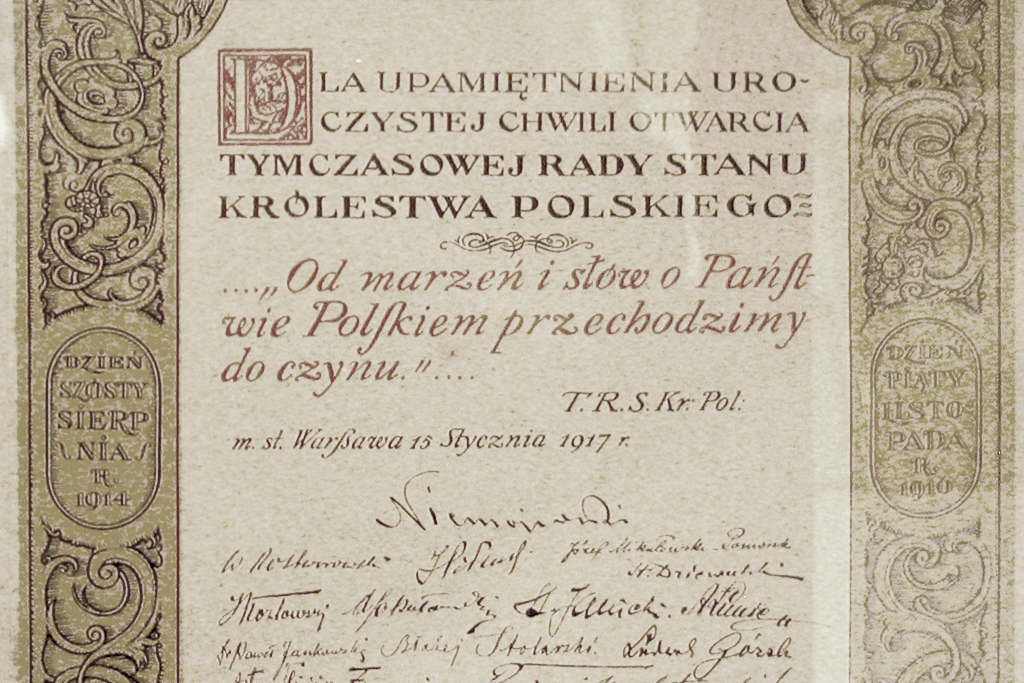 DLA UPAMIĘTNIENIA URO-
CZYSTEJ CHWILI OTWARCIA
TYMCZASOWEJ RADY STANU
KRÓLESTWA POLSKIEGO
....„Od marzeń i słów o Pańſt-
wie Polſkiem przechodzimy
do czynu."....
T. R. S. Kr. Pol:
m. st. Warßawa 15 Stycznia 1917 r.
DZIEŃ
SZÓSTY
SIERP
NIA
R.
1914
DZIEŃ
PIĄTY
LISTO-
PADA
R.
1916
Niemojowski
W Rostworowski
Józef Mikułowski-Pomorski
St. Dziewulski
Kozłowski
Błażej Stolarski.
Ludwik Górski